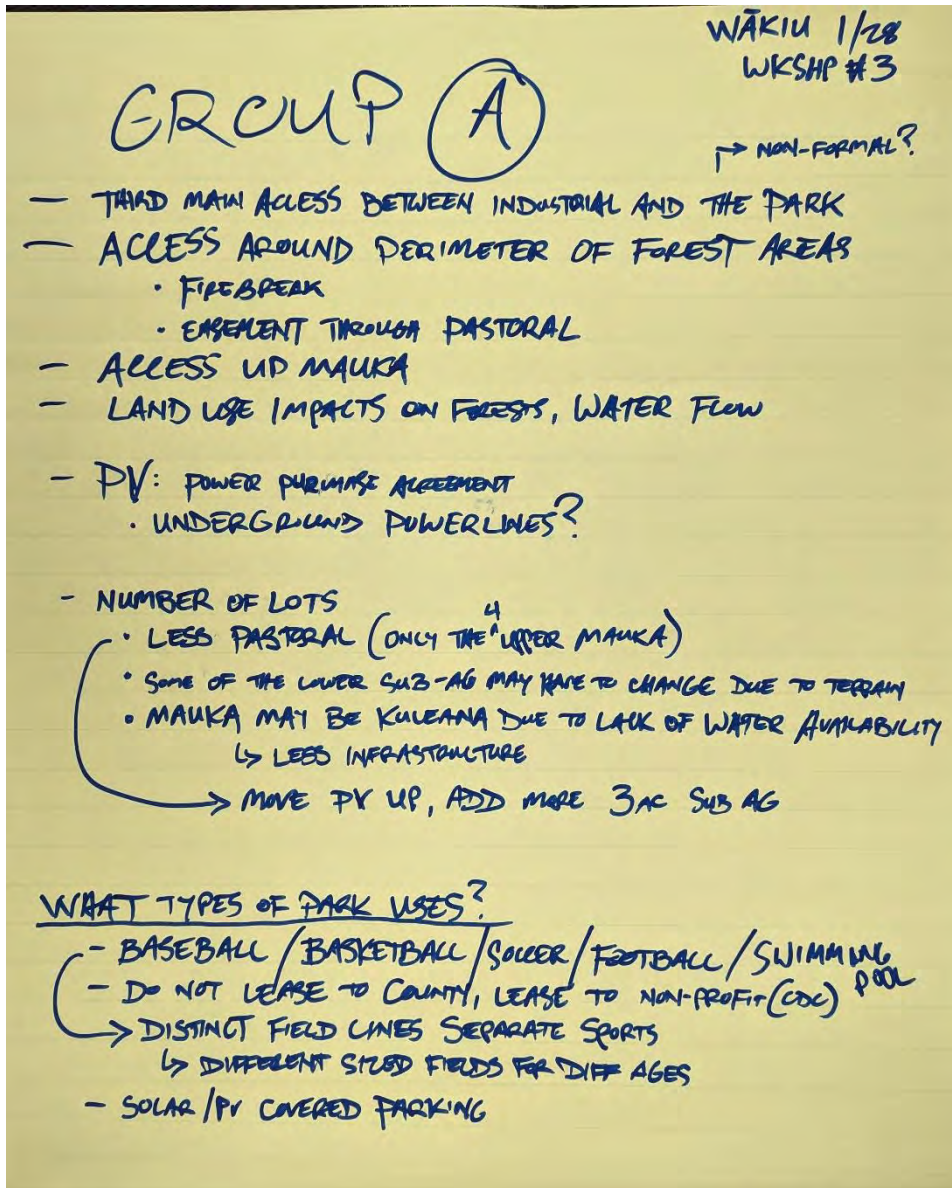 WĀKIU 1/28
WKSHP #3
GROUP A
↱> NON-FORMAL?
— THIRD MAIN ACCESS BETWEEN INDUSTRIAL AND THE PARK
— ACCESS AROUND PERIMETER OF FOREST AREAS
• FIREBREAK
• EASEMENT THROUGH PASTORAL
— ACCESS UP MAUKA
— LAND USE IMPACTS ON FORESTS, WATER FLOW
— PV: POWER PURCHASE AGREEMENT
• UNDERGROUND POWERLINES?
— NUMBER OF LOTS
• LESS PASTORAL (ONLY THE ^4 UPPER MAUKA)
• SOME OF THE LOWER SUB-AG MAY HAVE TO CHANGE DUE TO TERRAIN
• MAUKA MAY BE KULEANA DUE TO LACK OF WATER AVAILABILITY
↳ LESS INFRASTRUCTURE
→ MOVE PV UP, ADD MORE 3 AC SUB AG
WHAT TYPES OF PARK USES?
— BASEBALL / BASKETBALL / SOCCER / FOOTBALL / SWIMMING POOL
— DO NOT LEASE TO COUNTY, LEASE TO NON-PROFIT (CDC)
→ DISTINCT FIELD LINES SEPARATE SPORTS
↳ DIFFERENT SIZED FIELDS FOR DIFF AGES
— SOLAR / PV COVERED PARKING